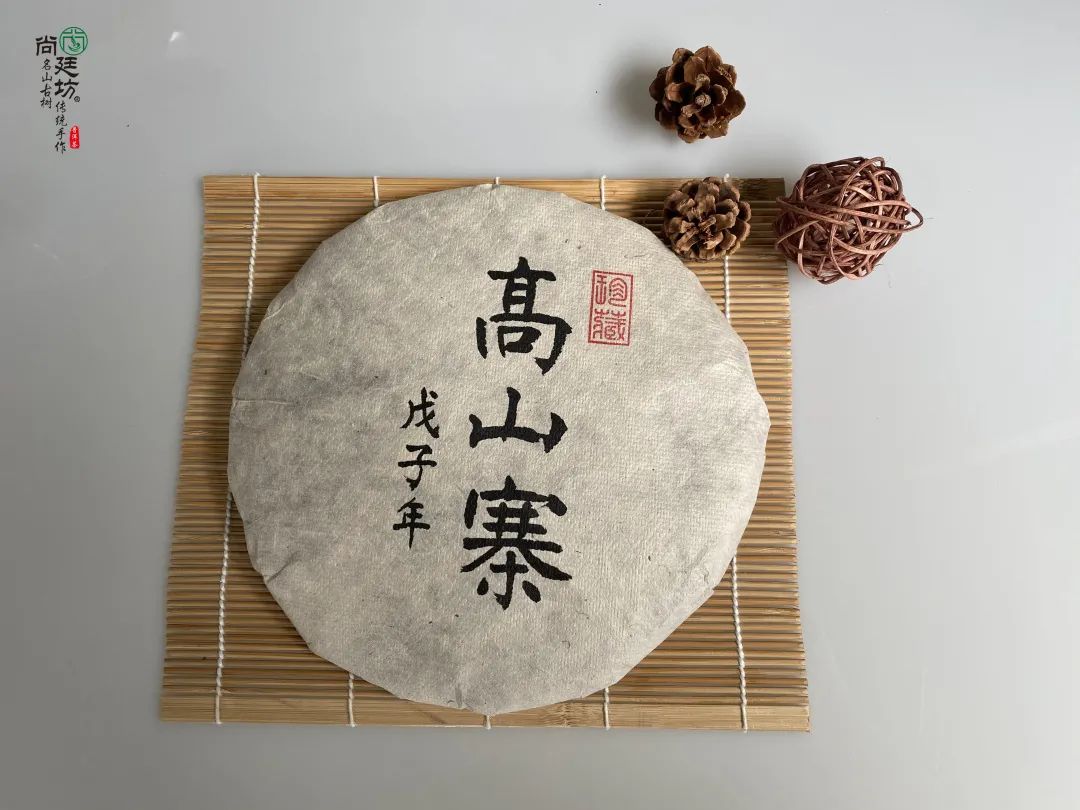 尚廷坊
名山古树
传统手作
普洱茶
珍藏
高山寨
戊子年